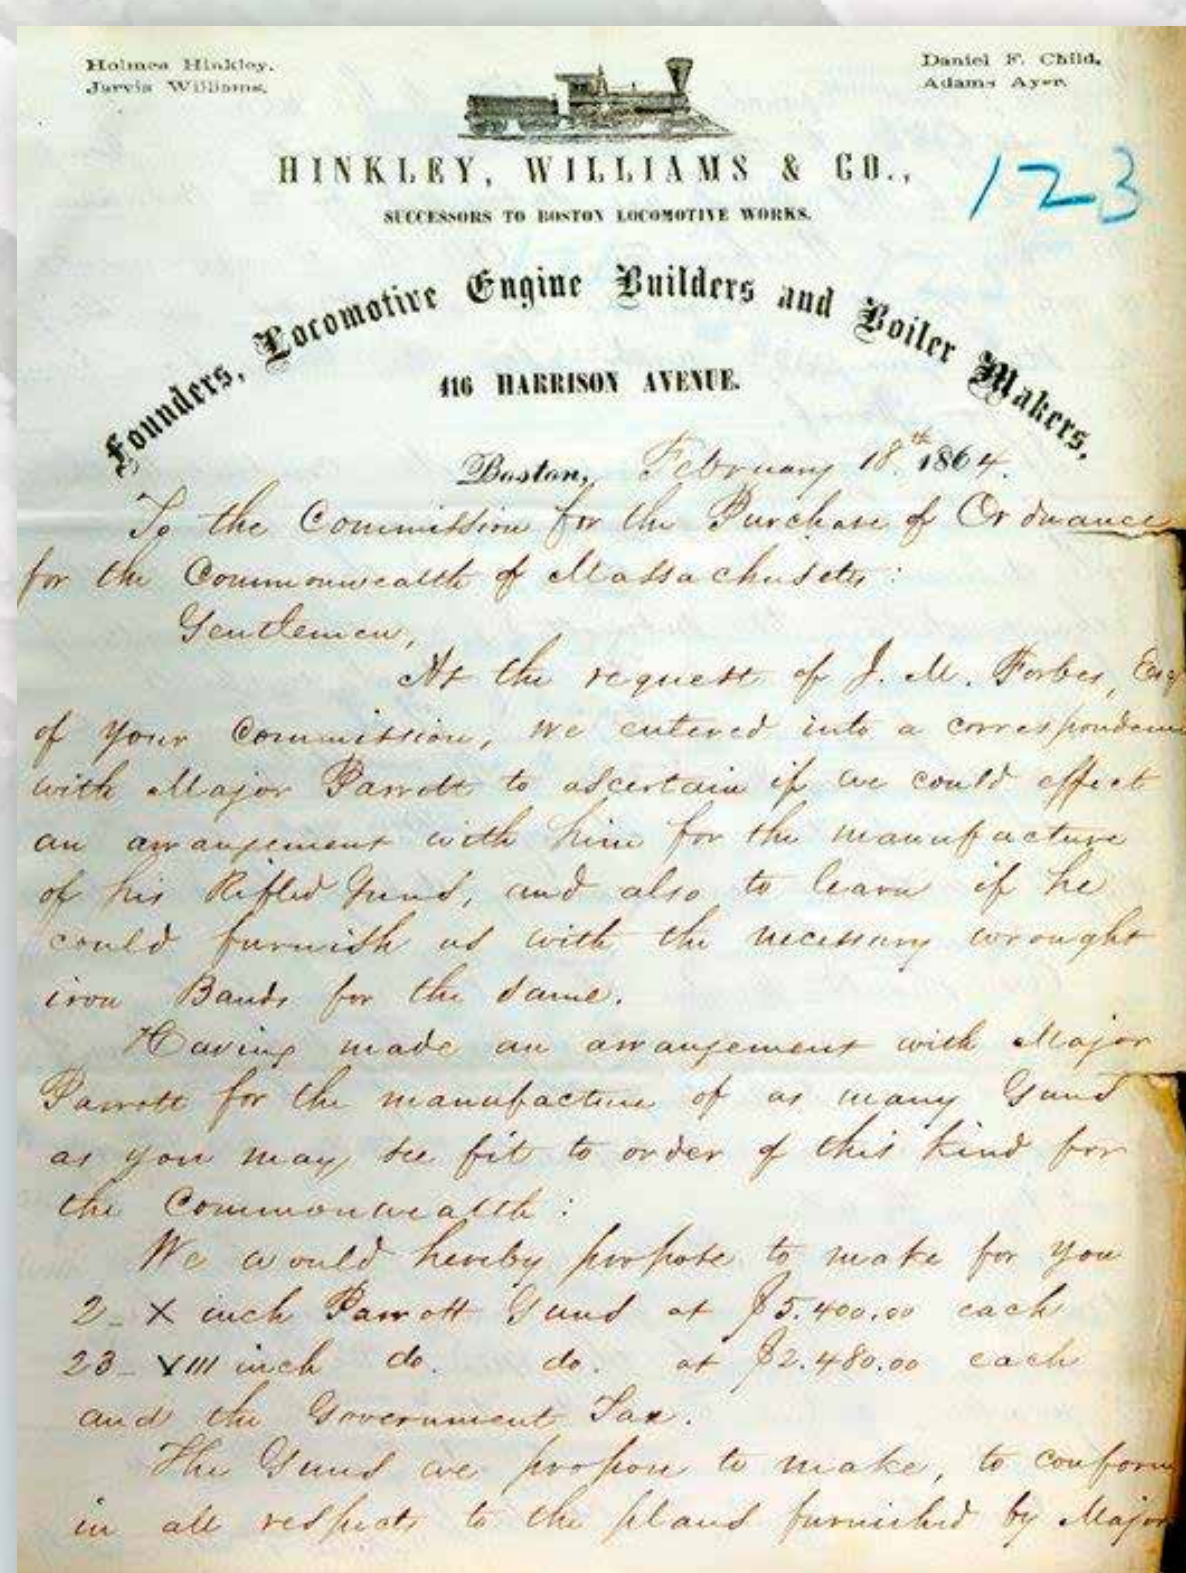 Holmes Hinkley.
Jarvis Williams.
Daniel F. Child.
Adams Ayer.
HINKLEY, WILLIAMS & CO.,
123
SUCCESSORS TO BOSTON LOCOMOTIVE WORKS.
Founders, Locomotive Engine Builders and Boiler Makers,
416 HARRISON AVENUE.
Boston, February 18th 1864.
To the Commission for the Purchase of Ordnance
for the Commonwealth of Massachusetts:
Gentlemen,
At the request of J. M. Forbes, Esq
of your Commission, we entered into a correspondence
with Major Parrott to ascertain if we could effect
an arrangement with him for the manufacture
of his Rifled Guns, and also to learn if he
could furnish us with the necessary wrought
iron Bands for the same.
Having made an arrangement with Major
Parrott for the manufacture of as many Guns
as you may see fit to order of this kind for
the Commonwealth:
We would hereby propose to make for you
2 - X inch Parrott Guns at $5.400.00 each
23 - VIII inch do. do. at $2.480.00 each
and the Government Tax.
The Guns we propose to make, to conform
in all respects to the plans furnished by Major